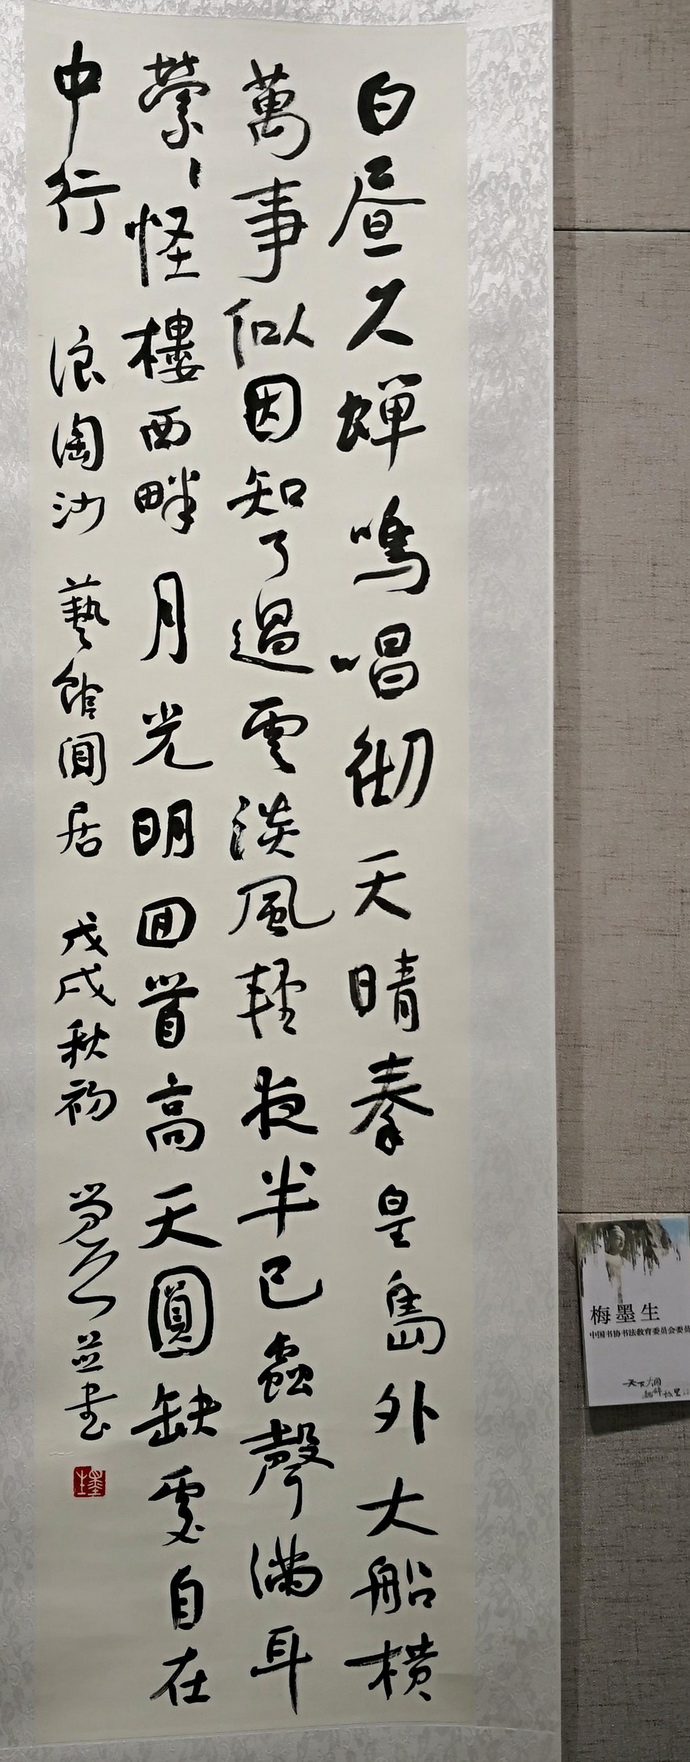 白昼久蝉鳴唱彻天晴秦皇島外大船横
萬事似因知了過雲淡風輕夜半已蟲聲满耳
縈〻怪樓西畔月光明囬首高天圓缺處自在
中行 浪淘沙 藝館閒居 戊戌秋初 覺公並書
梅墨生
中国书协书法教育委员会委员